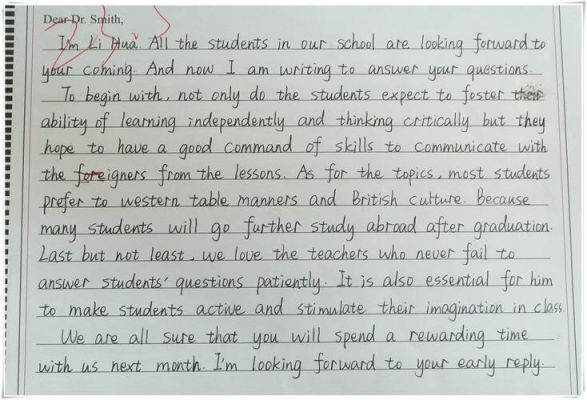 Dear Dr. Smith,
I'm Li Hua. All the students in our school are looking forward to
your coming. And now I am writing to answer your questions
To begin with, not only do the students expect to foster their
ability of learning independently and thinking critically but they
hope to have a good command of skills to communicate with
the foreigners from the lessons. As for the topics, most students
prefer to western table manners and British culture. Because
many students will go further study abroad after graduation.
Last but not least, we love the teachers who never fail to
answer students' questions patiently. It is also essential for him
to make students active and stimulate their imagination in class.
We are all sure that you will spend a rewarding time
with us next month. I'm looking forward to your early reply.